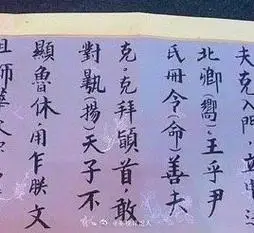 夫克入門,立中
北卿(嚮),王乎尹
氏冊令(命)善夫
克。克拜首,敢
對(揚)天子不
顯魯休,用乍朕文
師華父